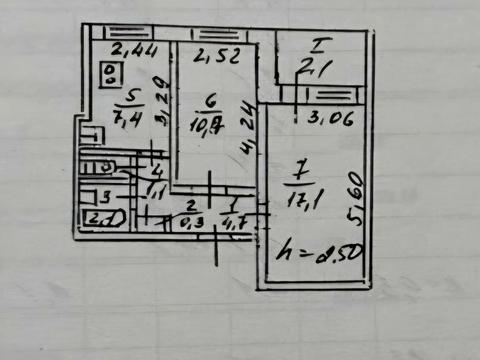 2,44
2,52
I
2,1
5
7,4
3,29
6
10,7
4,24
3,06
7
17,1
5,60
4
1,1
3
2,1
2
0,3
1
4,7
h = 2.50